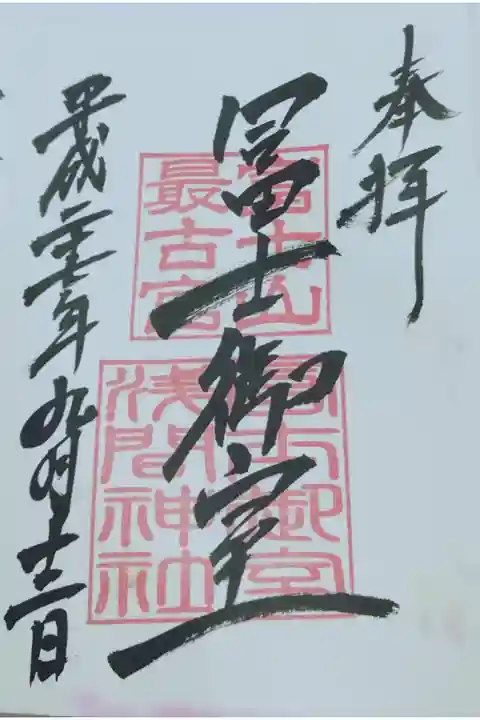 奉拝
冨士御室
富士山
最古宮
冨士御室
浅間神社
平成二十七年九月十二日